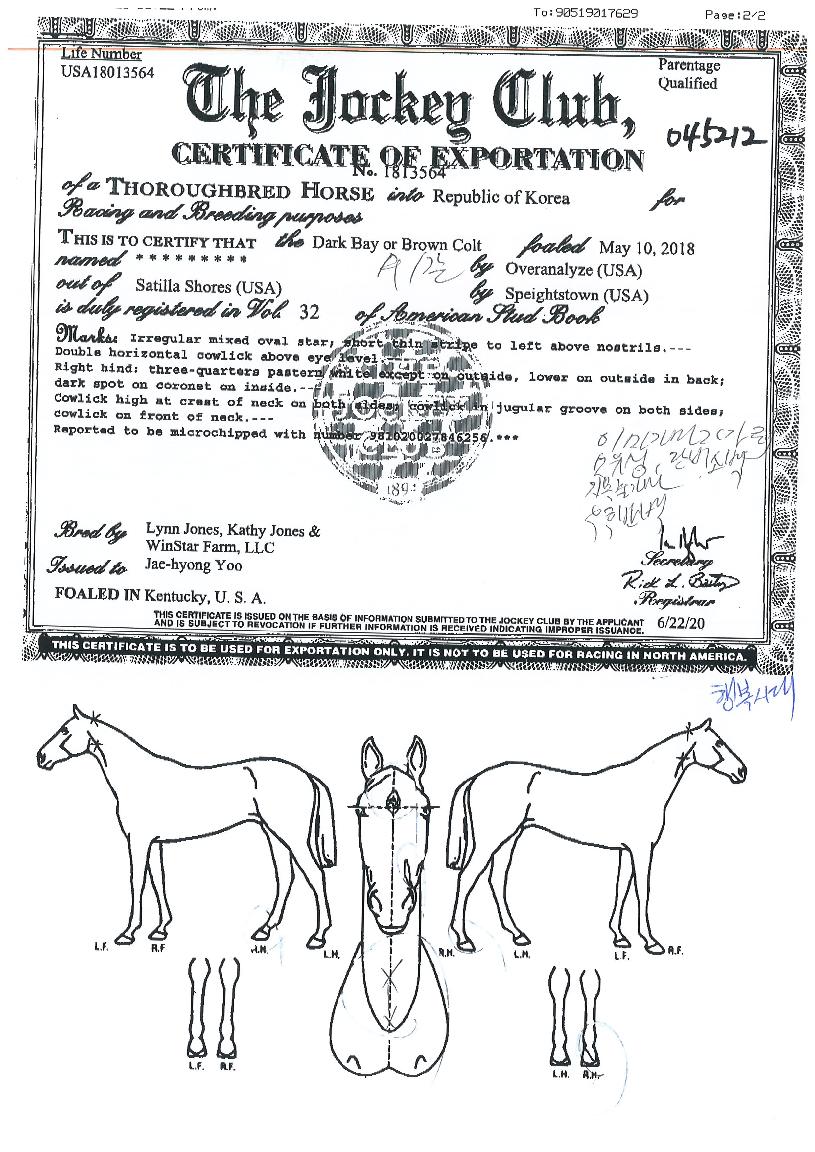 To:90519017629 Page:2/2
Life Number
USA18013564
Parentage
Qualified
The Jockey Club,
045212
CERTIFICATE OF EXPORTATION
No. 1813564
of a THOROUGHBRED HORSE into Republic of Korea for
Racing and Breeding purposes
THIS IS TO CERTIFY THAT the Dark Bay or Brown Colt foaled May 10, 2018
named * * * * * * * * * by Overanalyze (USA)
out of Satilla Shores (USA) by Speightstown (USA)
is duly registered in Vol. 32 of American Stud Book
Marks: Irregular mixed oval star; short thin stripe to left above nostrils.---
Double horizontal cowlick above eye level.---
Right hind: three-quarters pastern white except on outside, lower on outside in back;
dark spot on coronet on inside.---
Cowlick high at crest of neck on both sides; cowlick in jugular groove on both sides;
cowlick on front of neck.---
Reported to be microchipped with number 981020027846256.***
189
Bred by Lynn Jones, Kathy Jones &
WinStar Farm, LLC
Issued to Jae-hyong Yoo
Secretary
Rick L. Bailey
Registrar
FOALED IN Kentucky, U. S. A.
THIS CERTIFICATE IS ISSUED ON THE BASIS OF INFORMATION SUBMITTED TO THE JOCKEY CLUB BY THE APPLICANT
AND IS SUBJECT TO REVOCATION IF FURTHER INFORMATION IS RECEIVED INDICATING IMPROPER ISSUANCE. 6/22/20
THIS CERTIFICATE IS TO BE USED FOR EXPORTATION ONLY. IT IS NOT TO BE USED FOR RACING IN NORTH AMERICA.
행복시대
L.F. R.F R.H. L.H. R.H. L.H. L.F. R.F.
L.F. R.F. L.H. R.H.